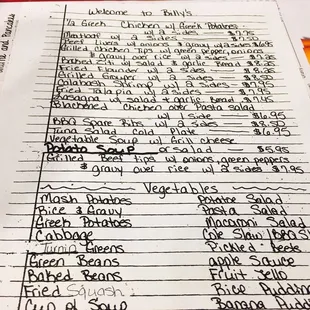 Welcome to Billy's
1/2 Greek Chicken w/ Greek Potatoes
w/ 2 sides
Meatloaf w/ 2 sides $7.95
Beef Livers w/ onions & gravy w/ 2 sides $6.95
Grilled Chicken Tips w/ green pepper, onions
& gravy over rice w/ 2 sides
Baked Ziti w/ salad & garlic bread $8.25
Fried Flounder w/ 2 sides
Grilled Grouper w/ 2 sides
Calabash Shrimp w/ 2 sides
Fried Tilapia w/ 2 sides
Lasagna w/ salad & garlic bread $7.95
Blackened Chicken over Pasta salad
w/ 1 side $6.95
BBQ Spare Ribs w/ 2 sides $8.50
Tuna Salad Cold Plate $6.95
Vegetable Soup w/ Grill cheese
Potato Soup or salad $5.95
Grilled Beef tips w/ onions, green peppers
& gravy over rice w/ 2 sides $7.95
Vegetables
Mash Potatoes Potatoe Salad
Rice & Gravy Pasta Salad
Greek Potatoes Macaroni Salad
Cabbage Cole Slaw
Turnip Greens Pickled Beets
Green Beans apple Sauce
Baked Beans Fruit Jello
Fried Squash Rice Pudding
Cup of Soup Banana Pudding